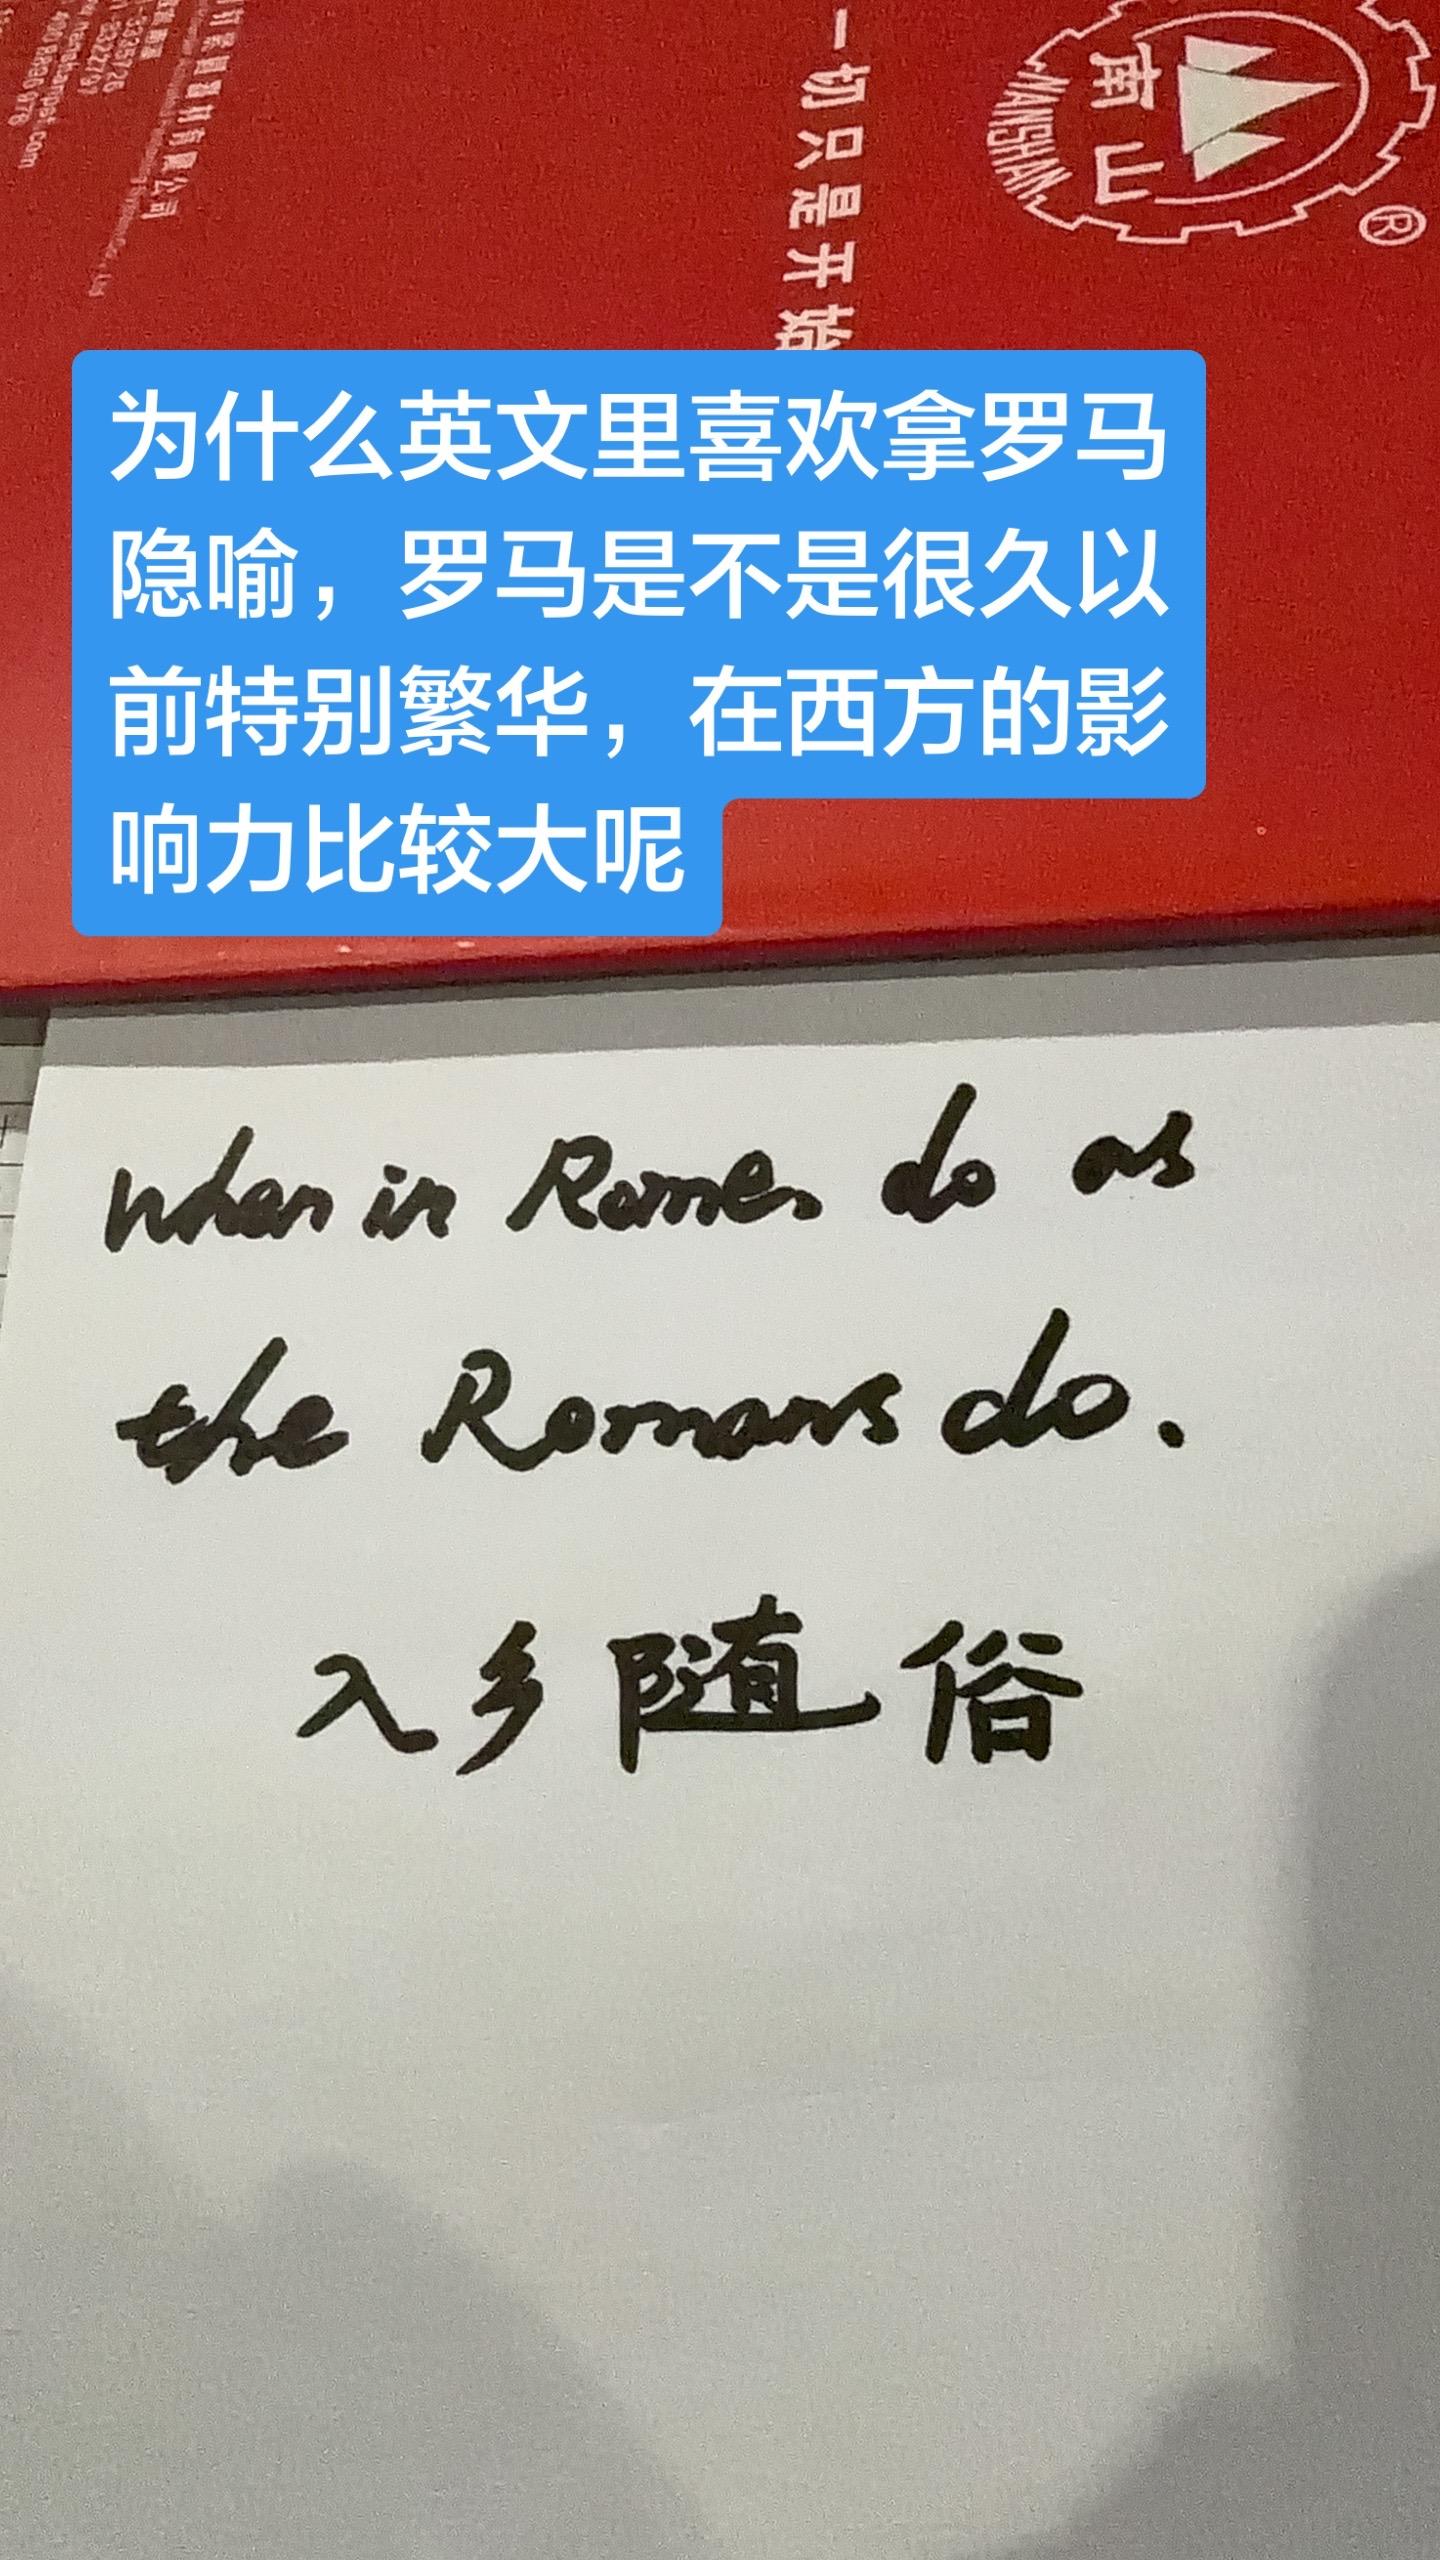 南山
NANSHAN
®
一切只是开始
400 8896 976
为什么英文里喜欢拿罗马
隐喻，罗马是不是很久以
前特别繁华，在西方的影
响力比较大呢
When in Rome, do as
the Romans do.
入乡随俗